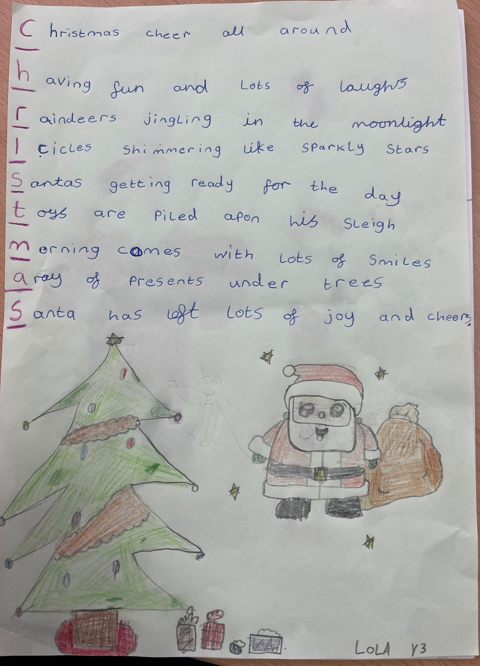 Christmas cheer all around
having fun and Lots of laughs
raindeers jingling in the moonlight
Icicles Shimmering like sparkly stars
Santas getting ready for the day
toys are Piled apon his sleigh
morning comes with Lots of smiles
aray of Presents under trees
Santa has left Lots of joy and cheers
LoLA Y3